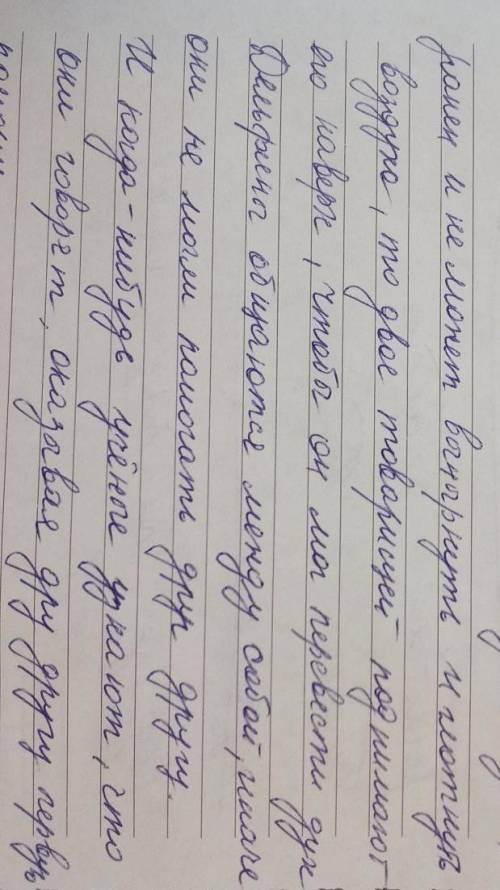 ранен и не может вынырнуть и глотнуть
воздуха, то двое товарищей поднимают
его наверх, чтобы он мог перевести дух
Дельфины общаются между собой, иначе
они не могли помогать друг другу.
И когда-нибудь учёные узнают, что
они говорят, оказывая дру другу первую